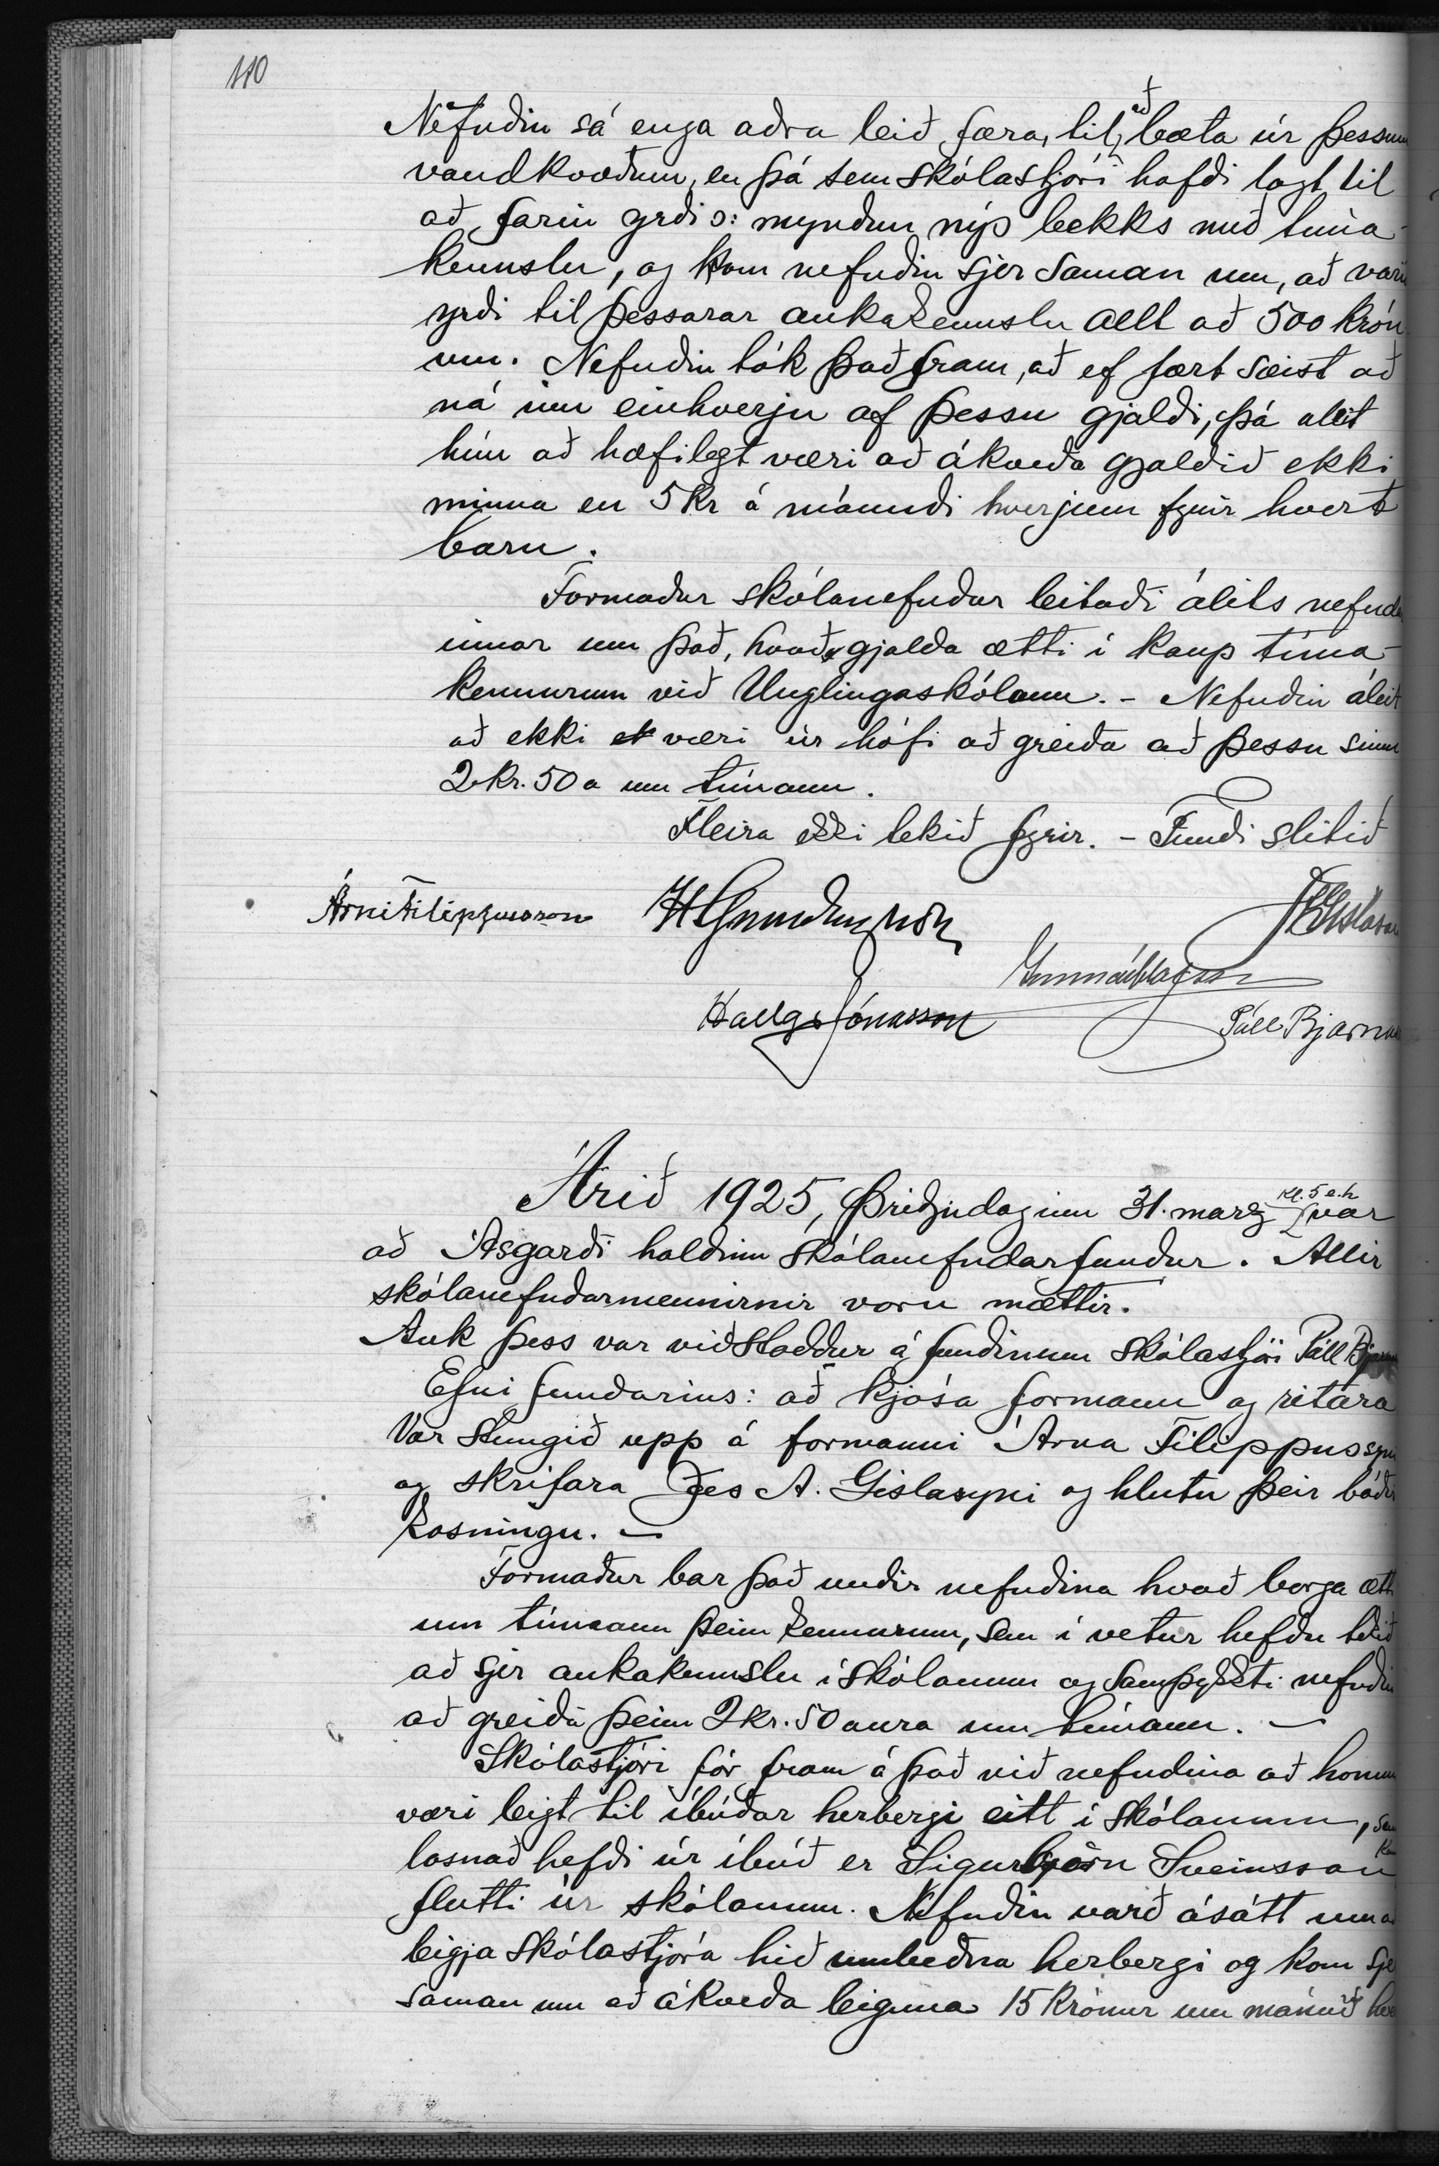 110
Nefndin sá enga aðra leið færa, til að bæta úr þessum
vandkvæðum, en þá sem skólastjóri hafði lagt til
að farin yrði ɔ: myndun nýs bekks með tíma-
kennslu, og kom nefndin sjer saman um, að varið
yrði til þessarar aukakennslu allt að 500 krón-
um. Nefndin tók það fram, að ef fært sæist að
ná inn einhverju af þessu gjaldi, þá áleit
hún að hæfilegt væri að ákveða gjaldið ekki
minna en 5 kr á mánuði hverjum fyrir hvert
barn.
Formaður skólanefndar leitaði álits nefndar
innar um það, hvað gjalda ætti í kaup tíma-
kennurum við Unglingaskólann. - Nefndin áleit
að ekki væri úr hófi að greiða að þessu sinni
2 kr. 50 a um tímann.
Fleira ekki tekið fyrir. - Fundi slitið
Árni Filippusson
JAGíslason
Gunnar Ólafsson
Hallgr Jónasson
Páll Bjarnas
Árið 1925, þriðjudaginn 31. marz kl. 5 e.h var
að Ásgarði haldinn skólanefndarfundur. Allir
skólanefndarmennirnir voru mættir.
Auk þess var viðstaddur á fundinum skólastjóri Páll Bjarnas
Efni fundarins: að kjósa formann og ritara
Var stungið upp á formanni Árna Filippussyni
og skrifara Jes A. Gíslasyni og hlutu þeir báðir
kosningu. —
Formaður bar það undir nefndina hvað borga ætti
um tímann þeim kennurum, sem í vetur hefðu tekið
að sjer aukakennslu í skólanum og samþykkti nefndin
að greiða þeim 2 kr. 50 aura um tímann. —
Skólastjóri fór fram á það við nefndina að honum
væri leigt til íbúðar herbergi eitt í skólanum, sem
losnað hefði úr íbúð er Sigurbjörn Sveinsson
flutti úr skólanum. Nefndin varð ásátt um að
leigja skólastjóra hið umbeðna herbergi og kom sje
saman um að ákveða leiguna 15 krónur um mánuð hve